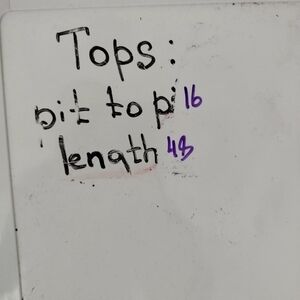 Tops:
pit to pi 16
length 48